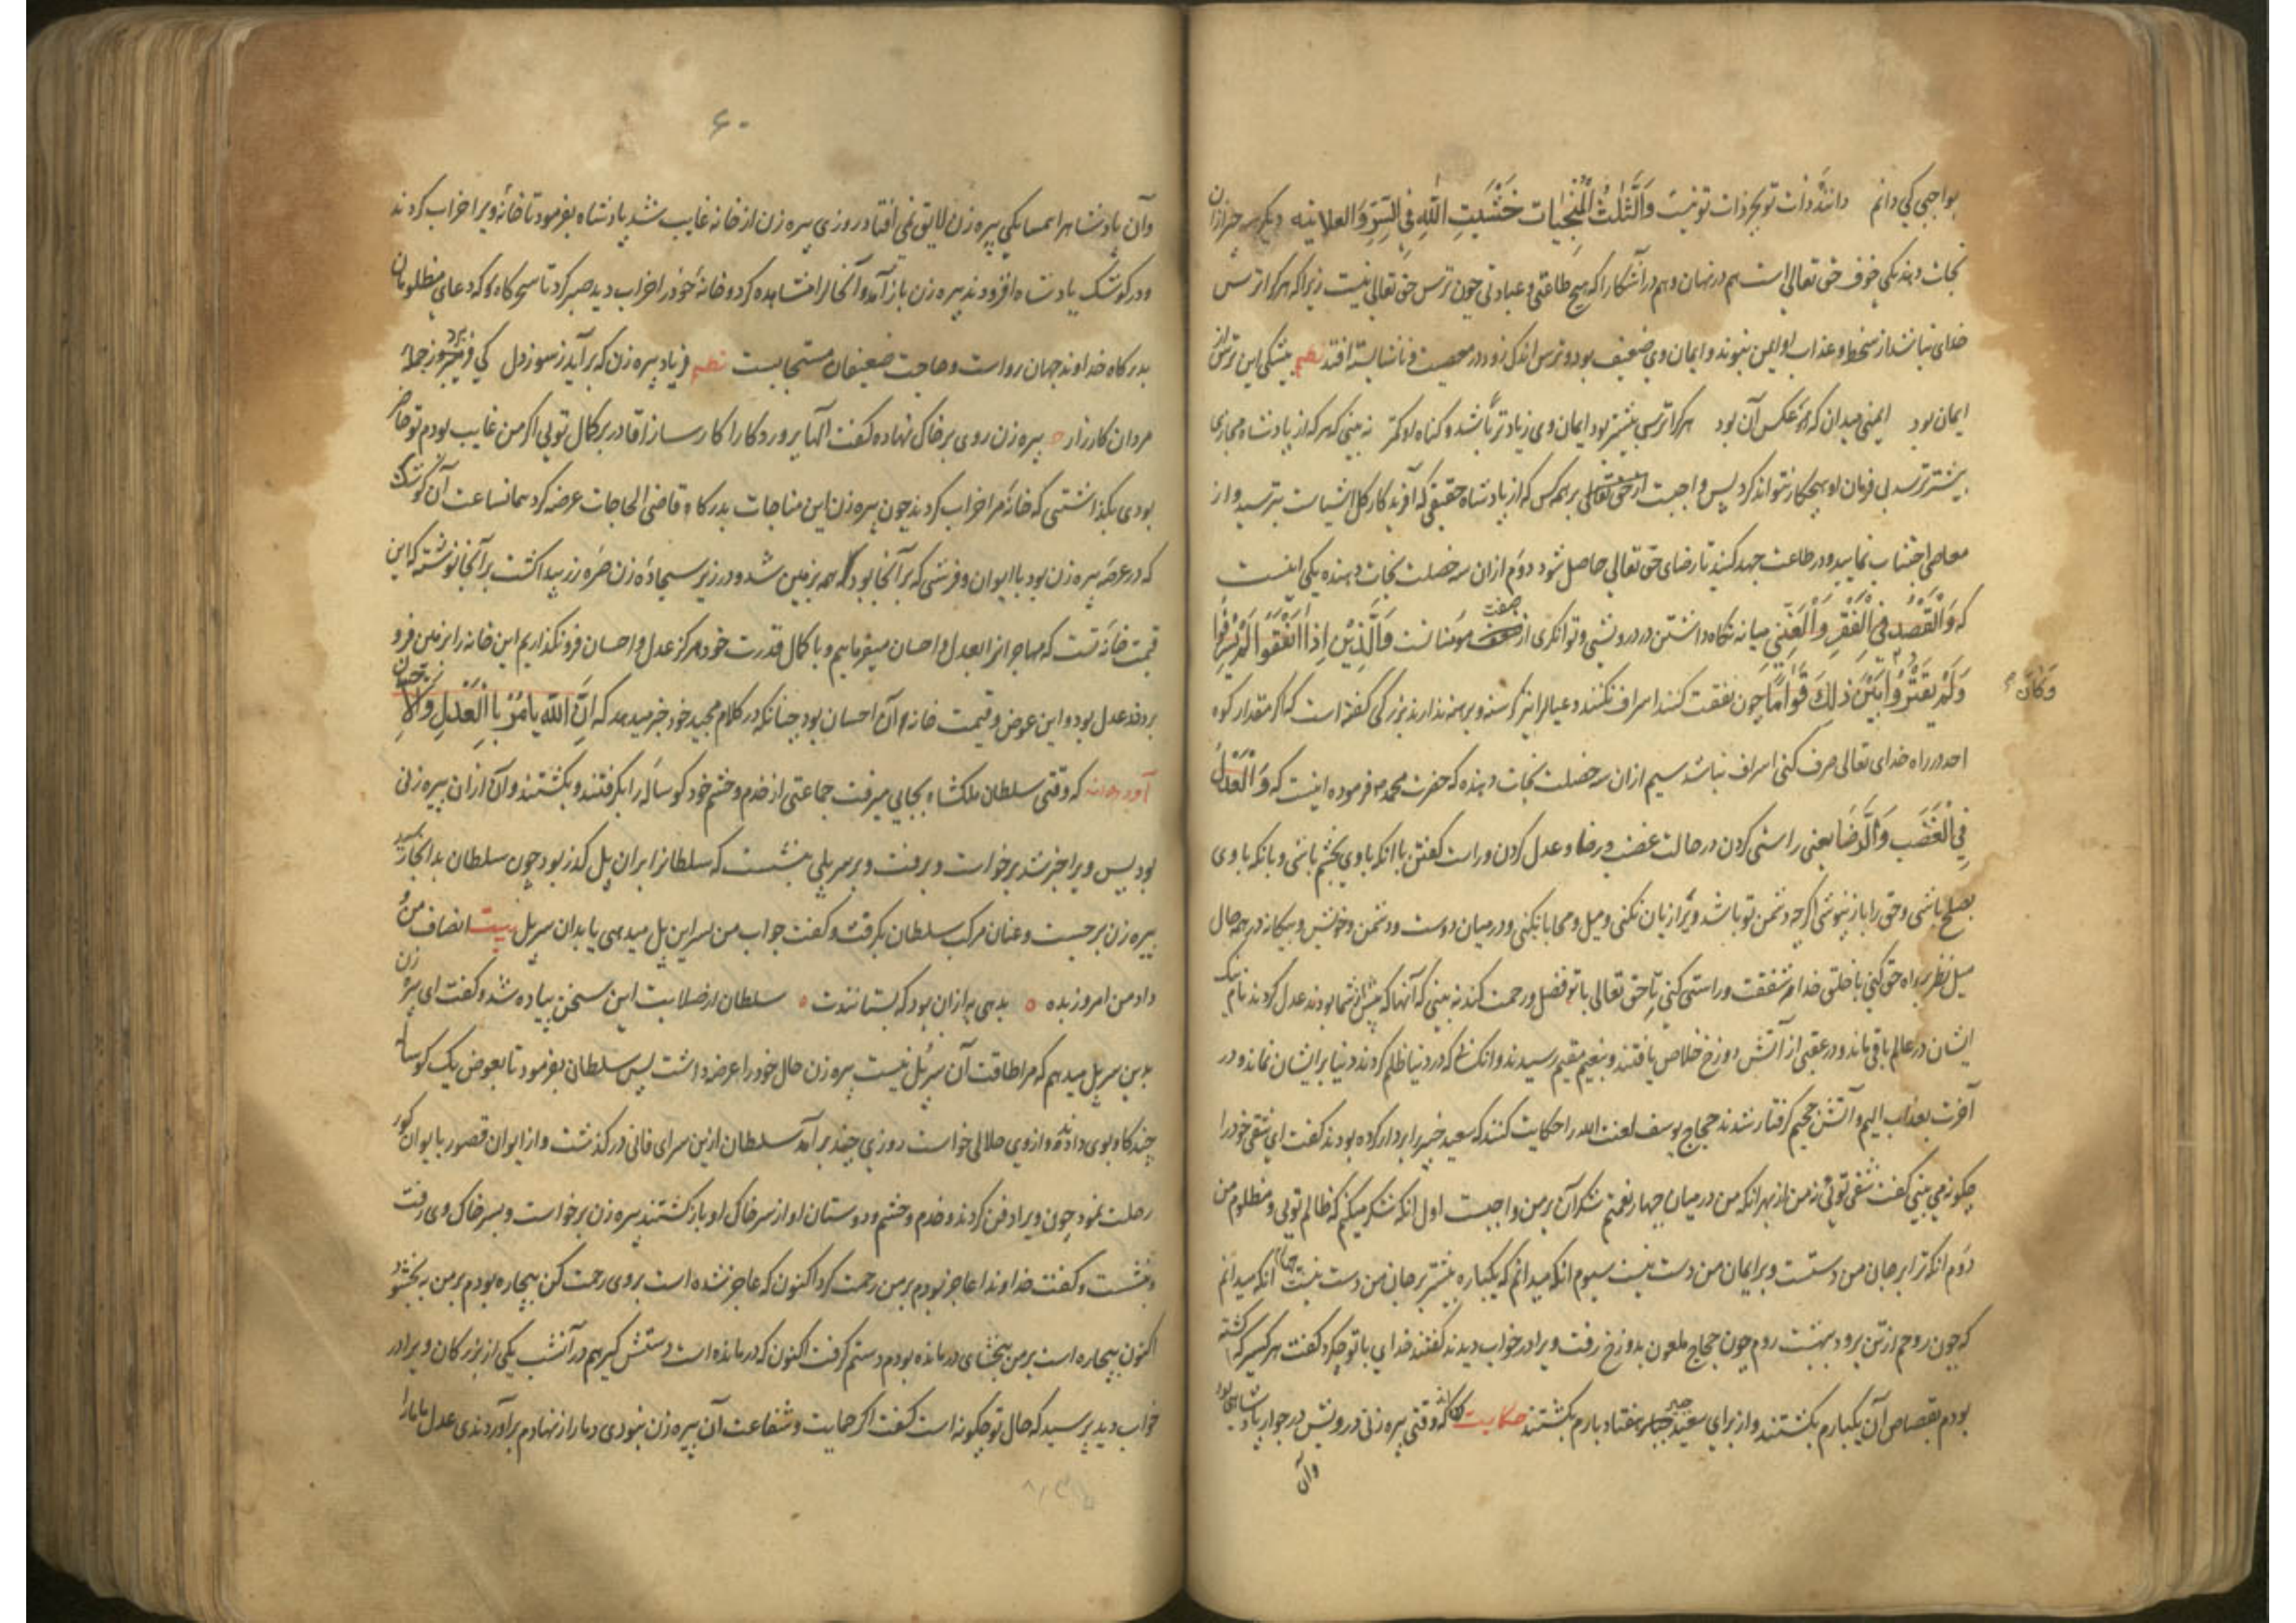 بواجبی کی دانم دانندهٔ ذات تو بجز ذات تو نیست وَالثَّلٰثُ الْمُنْجِیات خَشْیَتِ اللّٰهِ فِی السِّرِّ وَالعلانیه دیگر سه چیز ازان
نجات دهند یکی خوف حق تعالی است هم در نهان و هم در آشکارا که هیچ طاعتی و عبادتی چون ترس حق تعالی نیست زیرا که هر کرا ترس
خدای نباشد از سخط و عذاب او ایمن شوند و ایمان وی ضعیف بود و ترس اندک زود در معصیت و ناشایسته افتد نظم بیشکی این ترس از
ایمان بود ایمنی میدان که هم عکس آن بود هر کرا ترس بیشتر بود ایمان وی زیاد تر باشد و گناه او کمتر نه بینی که هر که از پادشاه مجازی
بیشتر ترسد بی فرمان او هیچ کار نتواند کرد پس واجبست از حق تعالی بر همه کس که از پادشاه حقیقی که آفریدگار کل اشیاست بترسید و از
معاصی اجتناب نمایید و در طاعت جهد کنید تا رضای حق تعالی حاصل شود دوم ازان سه خصلت نجات دهنده یکی اینست
که وَالْقَصْدُ فِی الْفَقْرِ وَالْغَنِی میانه نگاه داشتن در درویشی و توانگری از صفت مؤمنانست وَالَّذِیْنَ اِذَا اَنْفَقُوا لَمْ یُسْرِفُوا
وَلَمْ یَقْتُرُوْا بَیْنَ ذٰلِكَ قَوَامًا چون نفقت کنند اسراف نکنند و عیالرا نیز گرسنه و برهنه ندارند بزرگی گفته است که اگر مقدار کوه
وَکَانَ
احد در راه خدای تعالی صرف کنی اسراف نباشد سیم ازان سه خصلت نجات دهنده که حضرت محمد فرموده اینست که وَالْعَدْلُ
فِی الْغَضَبِ وَالرِّضَا یعنی راستی کردن در حالت غضب و رضا و عدل کردن و راست گفتن با آنکه با وی بخشم باشی و بآنکه با وی
بصلح باشی و حق را باز نپوشی اگرچه دشمن تو باشد و یرا زیان نکنی و میل و محابا نکنی و در میان دوست و دشمن و خویش و بیگانه در همه حال
میل نظر براه حق کنی با خلق خدا هم شفقت و راستی کنی تا حق تعالی با تو فضل و رحمت کند نه بینی که آنها که پیش از شما بودند عدل کردند نام نیک
ایشان در عالم باقی ماند و در عقبی از آتش دوزخ خلاص یافتند و بنعیم مقیم رسیدند و آنک که در دنیا ظلم کردند دنیا بر ایشان نماند و در
آخرت بعذاب الیم و آتش جحیم گرفتار شدند حجاج یوسف لعنت الله را حکایت کنند که سعید جبیر را بر دار کرده بودند گفت ای شقی خود را
چگونه می بینی گفت شقی توئی نه من از بهر آنکه من در میان چهار نعمتم شکر آن بر من واجبست اول آنکه شکر میکنم که ظالم توئی و مظلوم من
دوم آنکه ترا بر جان من دستست و بر ایمان من دست نیست سیوم آنکه میدانم که یکباره بیشتر بر جان من دست نیست چهارم آنکه میدانم
که چون روحم از تن برود بهشت روم چون حجاج ملعون بدوزخ رفت ویرا در خواب دیدند گفتند خدای با تو چه کرد گفت هر کسیرا که کشته
بودم بقصاص آن یکبارم بکشتند و از برای سعید جبیر هفتاد بارم بکشتند حکایت که وقتی پیره زنی درویش در جوار پادشاهی بود
وآن
۶۰
وآن پادشاهرا همسایگی پیره زن لایق نمی افتاد روزی پیره زن از خانه غایب شد پادشاه بفرمود تا خانهٔ ویرا خراب کردند
و در کوشک پادشاه افزودند پیره زن باز آمد و آنحال را مشاهده کرد و خانهٔ خود را خراب دید صبر کرد تا سحرگاه که دعای مظلومان
بدرگاه خداوند جهان رواست و حاجت ضعیفان مستجابست نظم فریاد پیره زن که برآید ز سوز دل کی برد ز حملهٔ
مردان کارزار پیره زن روی بر خاک نهاده گفت الها پروردگارا کارسازا قادر بر کمال توئی اگر من غایب بودم تو حاضر
بودی بگذاشتی که خانهٔ مرا خراب کردند چون پیره زن این مناجات بدرگاه قاضی الحاجات عرضه کرد همانساعت آن کوشک
که در عرصهٔ پیره زن بود با ایوان و فرشی که بر آنجا بود همه بزمین شد و در زیر سجادهٔ زن صرهٔ زر پیدا گشت بر آنجا نوشته که این
قیمت خانه تست که مهاجرانرا بعدل و احسان میفرماییم و با کمال قدرت خود هرگز عدل و احسان فرو نگذاریم این خانه را بزمین فرو
بردند عدل بود و این عوض و قیمت خانه آن احسان بود چنانکه در کلام مجید خود خبر میدهد که اِنَّ اللّٰهَ یَامُرُ بِالْعَدْلِ وَالْاِحسان
آورده اند که وقتی سلطان ملکشاه بجایی میرفت جماعتی از خدم و حشم خود گوساله را بگرفتند و بکشتند و آن ازان پیره زنی
بود پس ویرا خبر شد برخواست و برفت و بر سر پلی بنشست که سلطانرا بران پل گذر بود چون سلطان بدانجا رسید
پیره زن برجست و عنان مرکب سلطان بگرفت و گفت جواب من بسر این پل میدهی یا بدان سر پل بیت انصاف من و
داد من امروز بده بدهی به ازان بود که بستانندت سلطان از صلابت این سخن پیاده شد و گفت ای پیر زن
بدین سر پل میدهم که مرا طاقت آن سر پل نیست پیره زن حال خود را عرضه داشت پس سلطان بفرمود تا بعوض یک گوساله
چند گاو بوی دادند و ازوی حلالی خواست روزی چند برآمد سلطان ازین سرای فانی درگذشت و از ایوان قصور با یوان گور
رحلت نمود چون ویرا دفن کردند و خدم و حشم و دوستان او از سر خاک او بازگشتند پیره زن برخواست و بسر خاک وی رفت
و بنشست و گفت خداوندا عاجز بودم بر من رحمت کرد اکنون که عاجز شده است بروی رحمت کن بیچاره بودم بر من ببخشود
اکنون بیچاره است بر من ببخشای درمانده بودم دستم گرفت اکنون که درمانده است دستش گیر هم در آنشب یکی از بزرگان ویرا در
خواب دید پرسید که حال تو چگونه است گفت اگر حمایت و شفاعت آن پیره زن نبودی دمار از نهادم برآوردندی عدل ما بارا